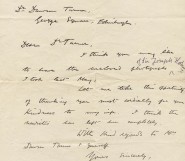 Dr. Duncan Turner
George Square, Edinburgh.
Dear Dr. Turner,
I think you may like
to have the enclosed photograph
I took last May.
Let me take this opportunity
of thanking you most cordially for your
kindness to my . I think the
has been
With kind regards to Mrs.
Turner & yourself
Yours sincerely,